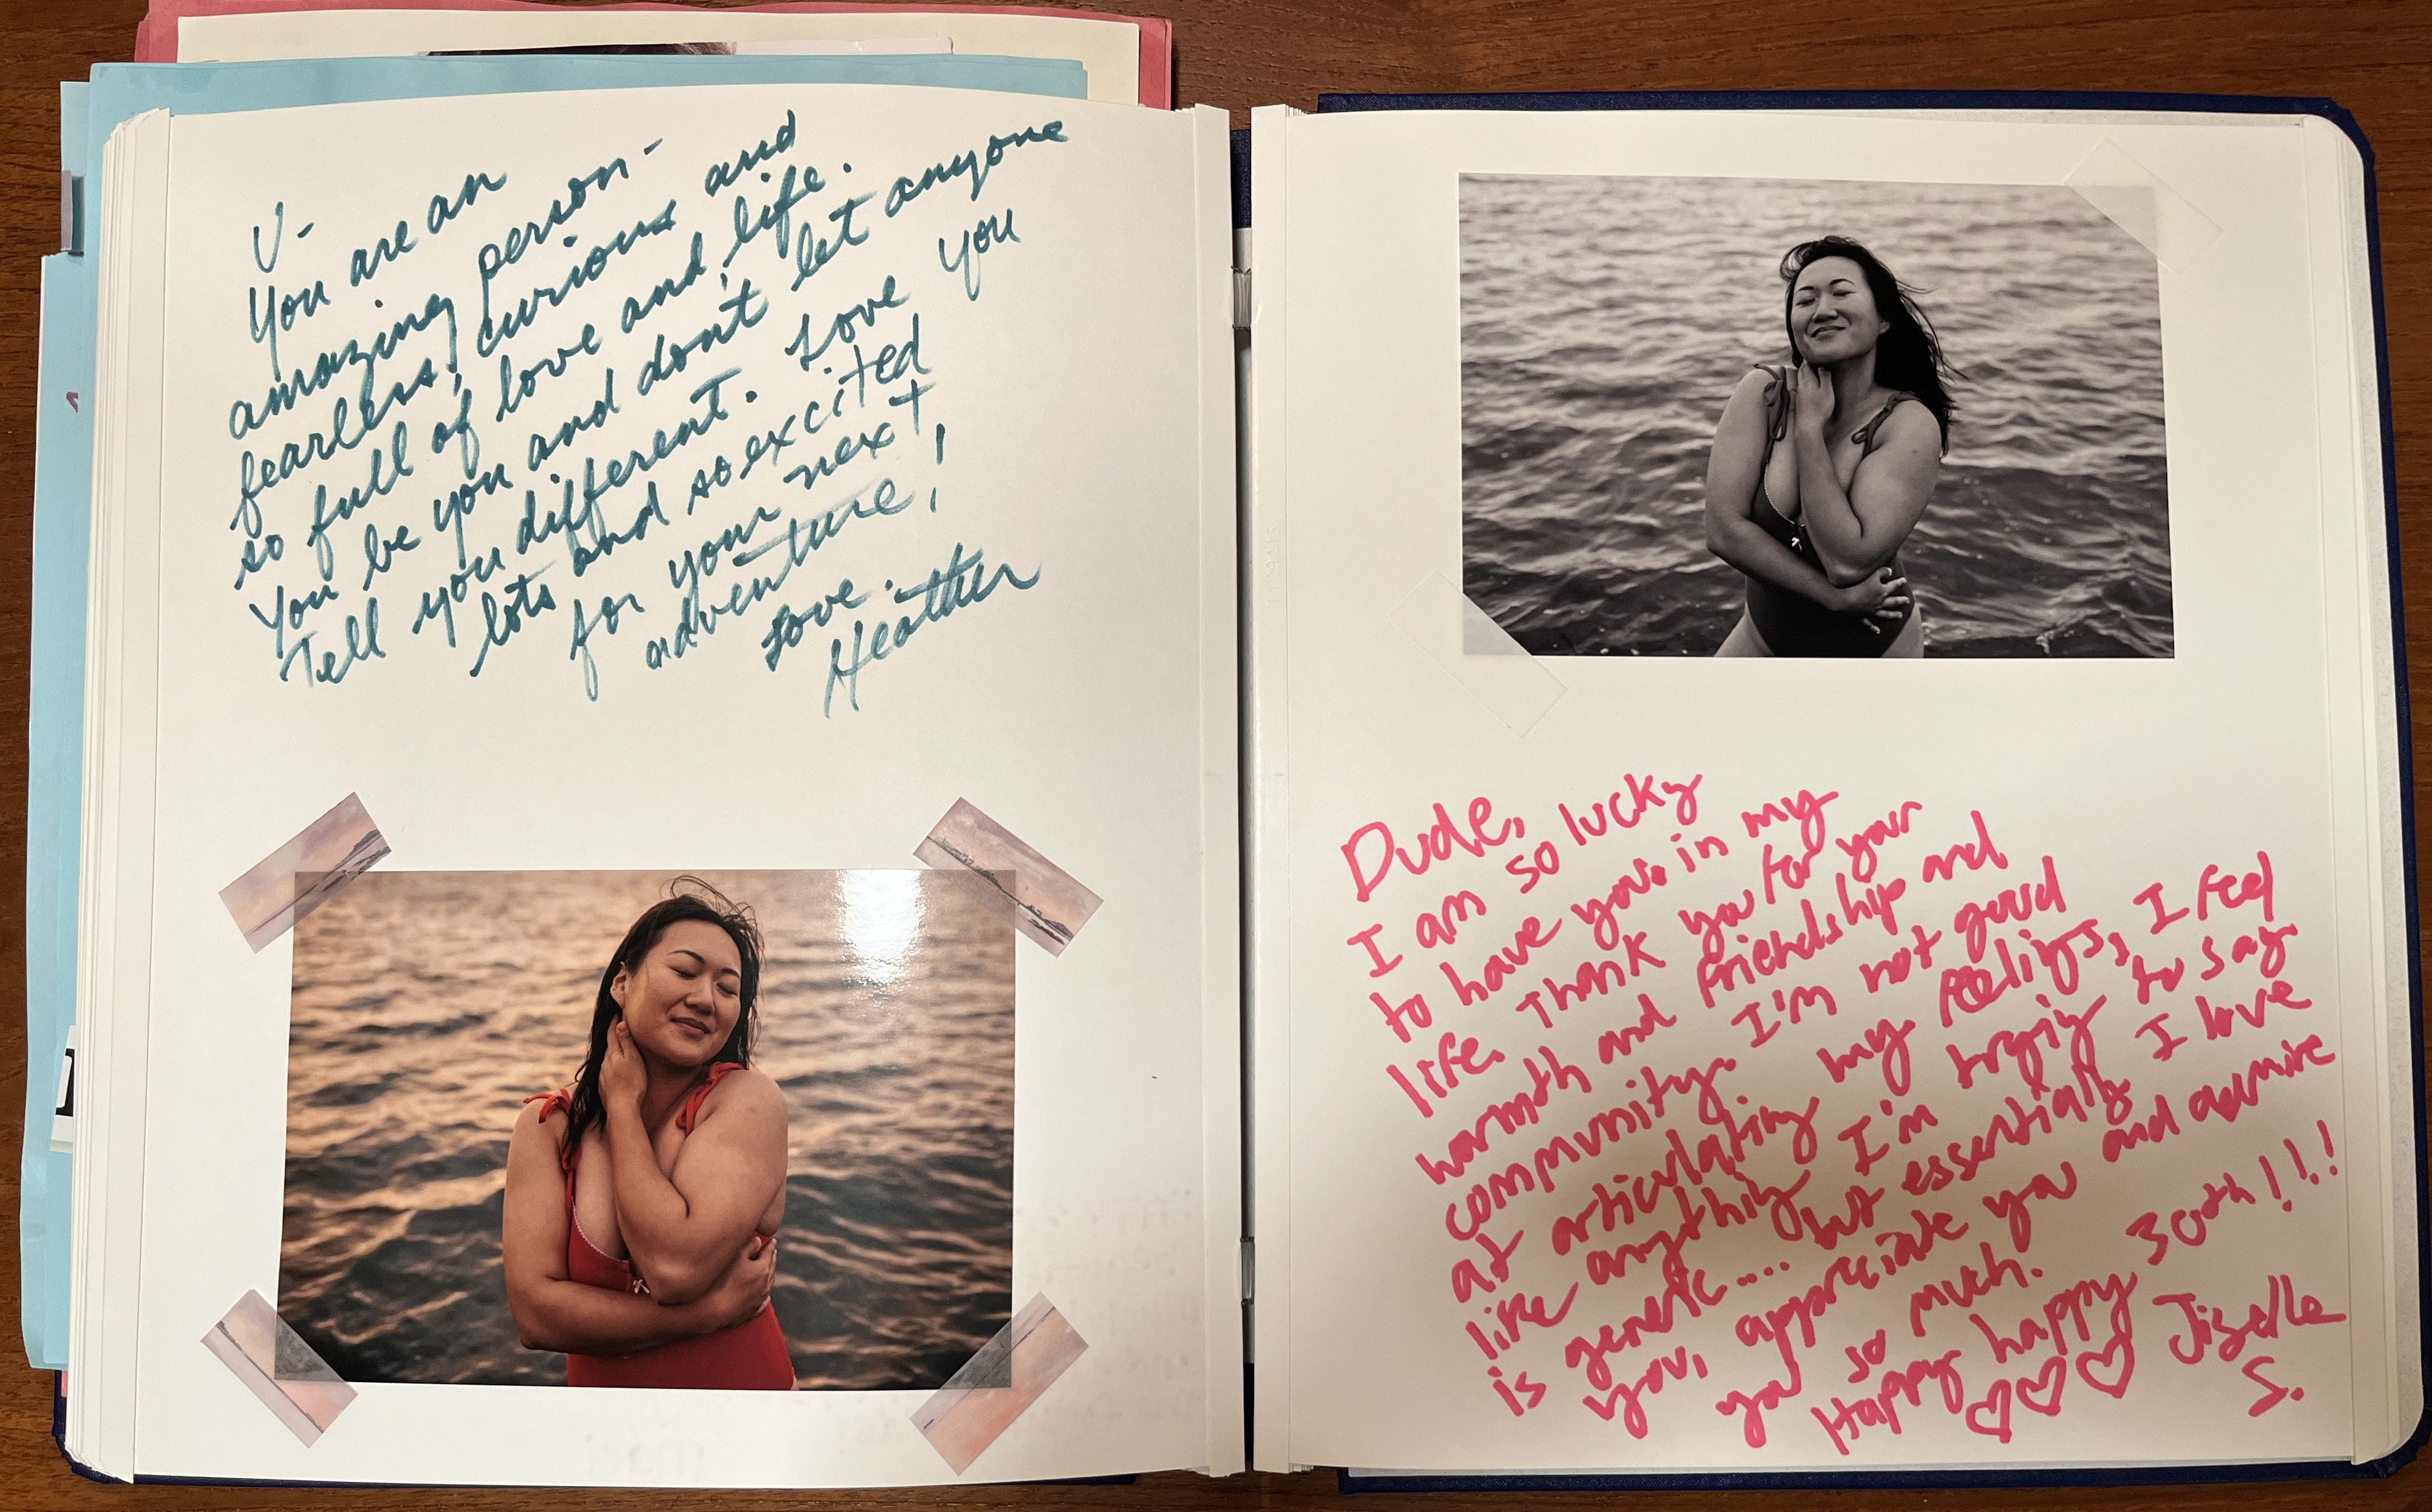 V-
You are an
amazing person -
fearless, curious and
so full of love and life.
You be you and don't let anyone
Tell you different. Love you
lots and so excited
for your next
adventure!
Love.
Heather
Dude,
I am so lucky
to have you in my
life. Thank you for your
warmth and friendship and
community. I'm not good
at articulating my feelings, I feel
like anything I'm trying to say
is generic.... but essentially I love
you, appreciate you and admire
you so much.
Happy happy happy 30th!!!
Jiselle
S.